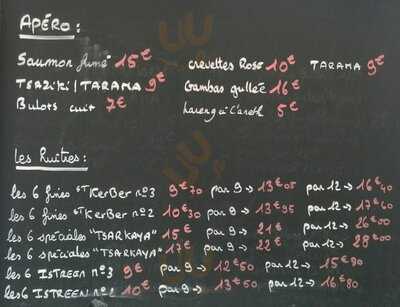 APÉRO :
Saumon fumé 15€
crevettes Rose 10€ TARAMA 9€
TZAZIKI / TARAMA 9€
Gambas grillée 16€
Bulots cuit 7€
hareng à l'aneth 5€
Les Huîtres :
les 6 fines St KerBer n°3 9€70 par 9 → 13€05 par 12 → 16€40
les 6 fines St KerBer n°2 10€30 par 9 → 13€95 par 12 → 17€60
les 6 spéciales "TSARKAYA" 15€ par 9 → 21€ par 12 → 26€00
les 6 spéciales "TSARKAYA" 17€ par 9 → 22€ par 12 → 28€00
les 6 ISTREAN n°3 9€ par 9 → 12€50 par 12 → 15€90
les 6 ISTREEN 10€ par 9 → 13€50 par 12 → 16€80